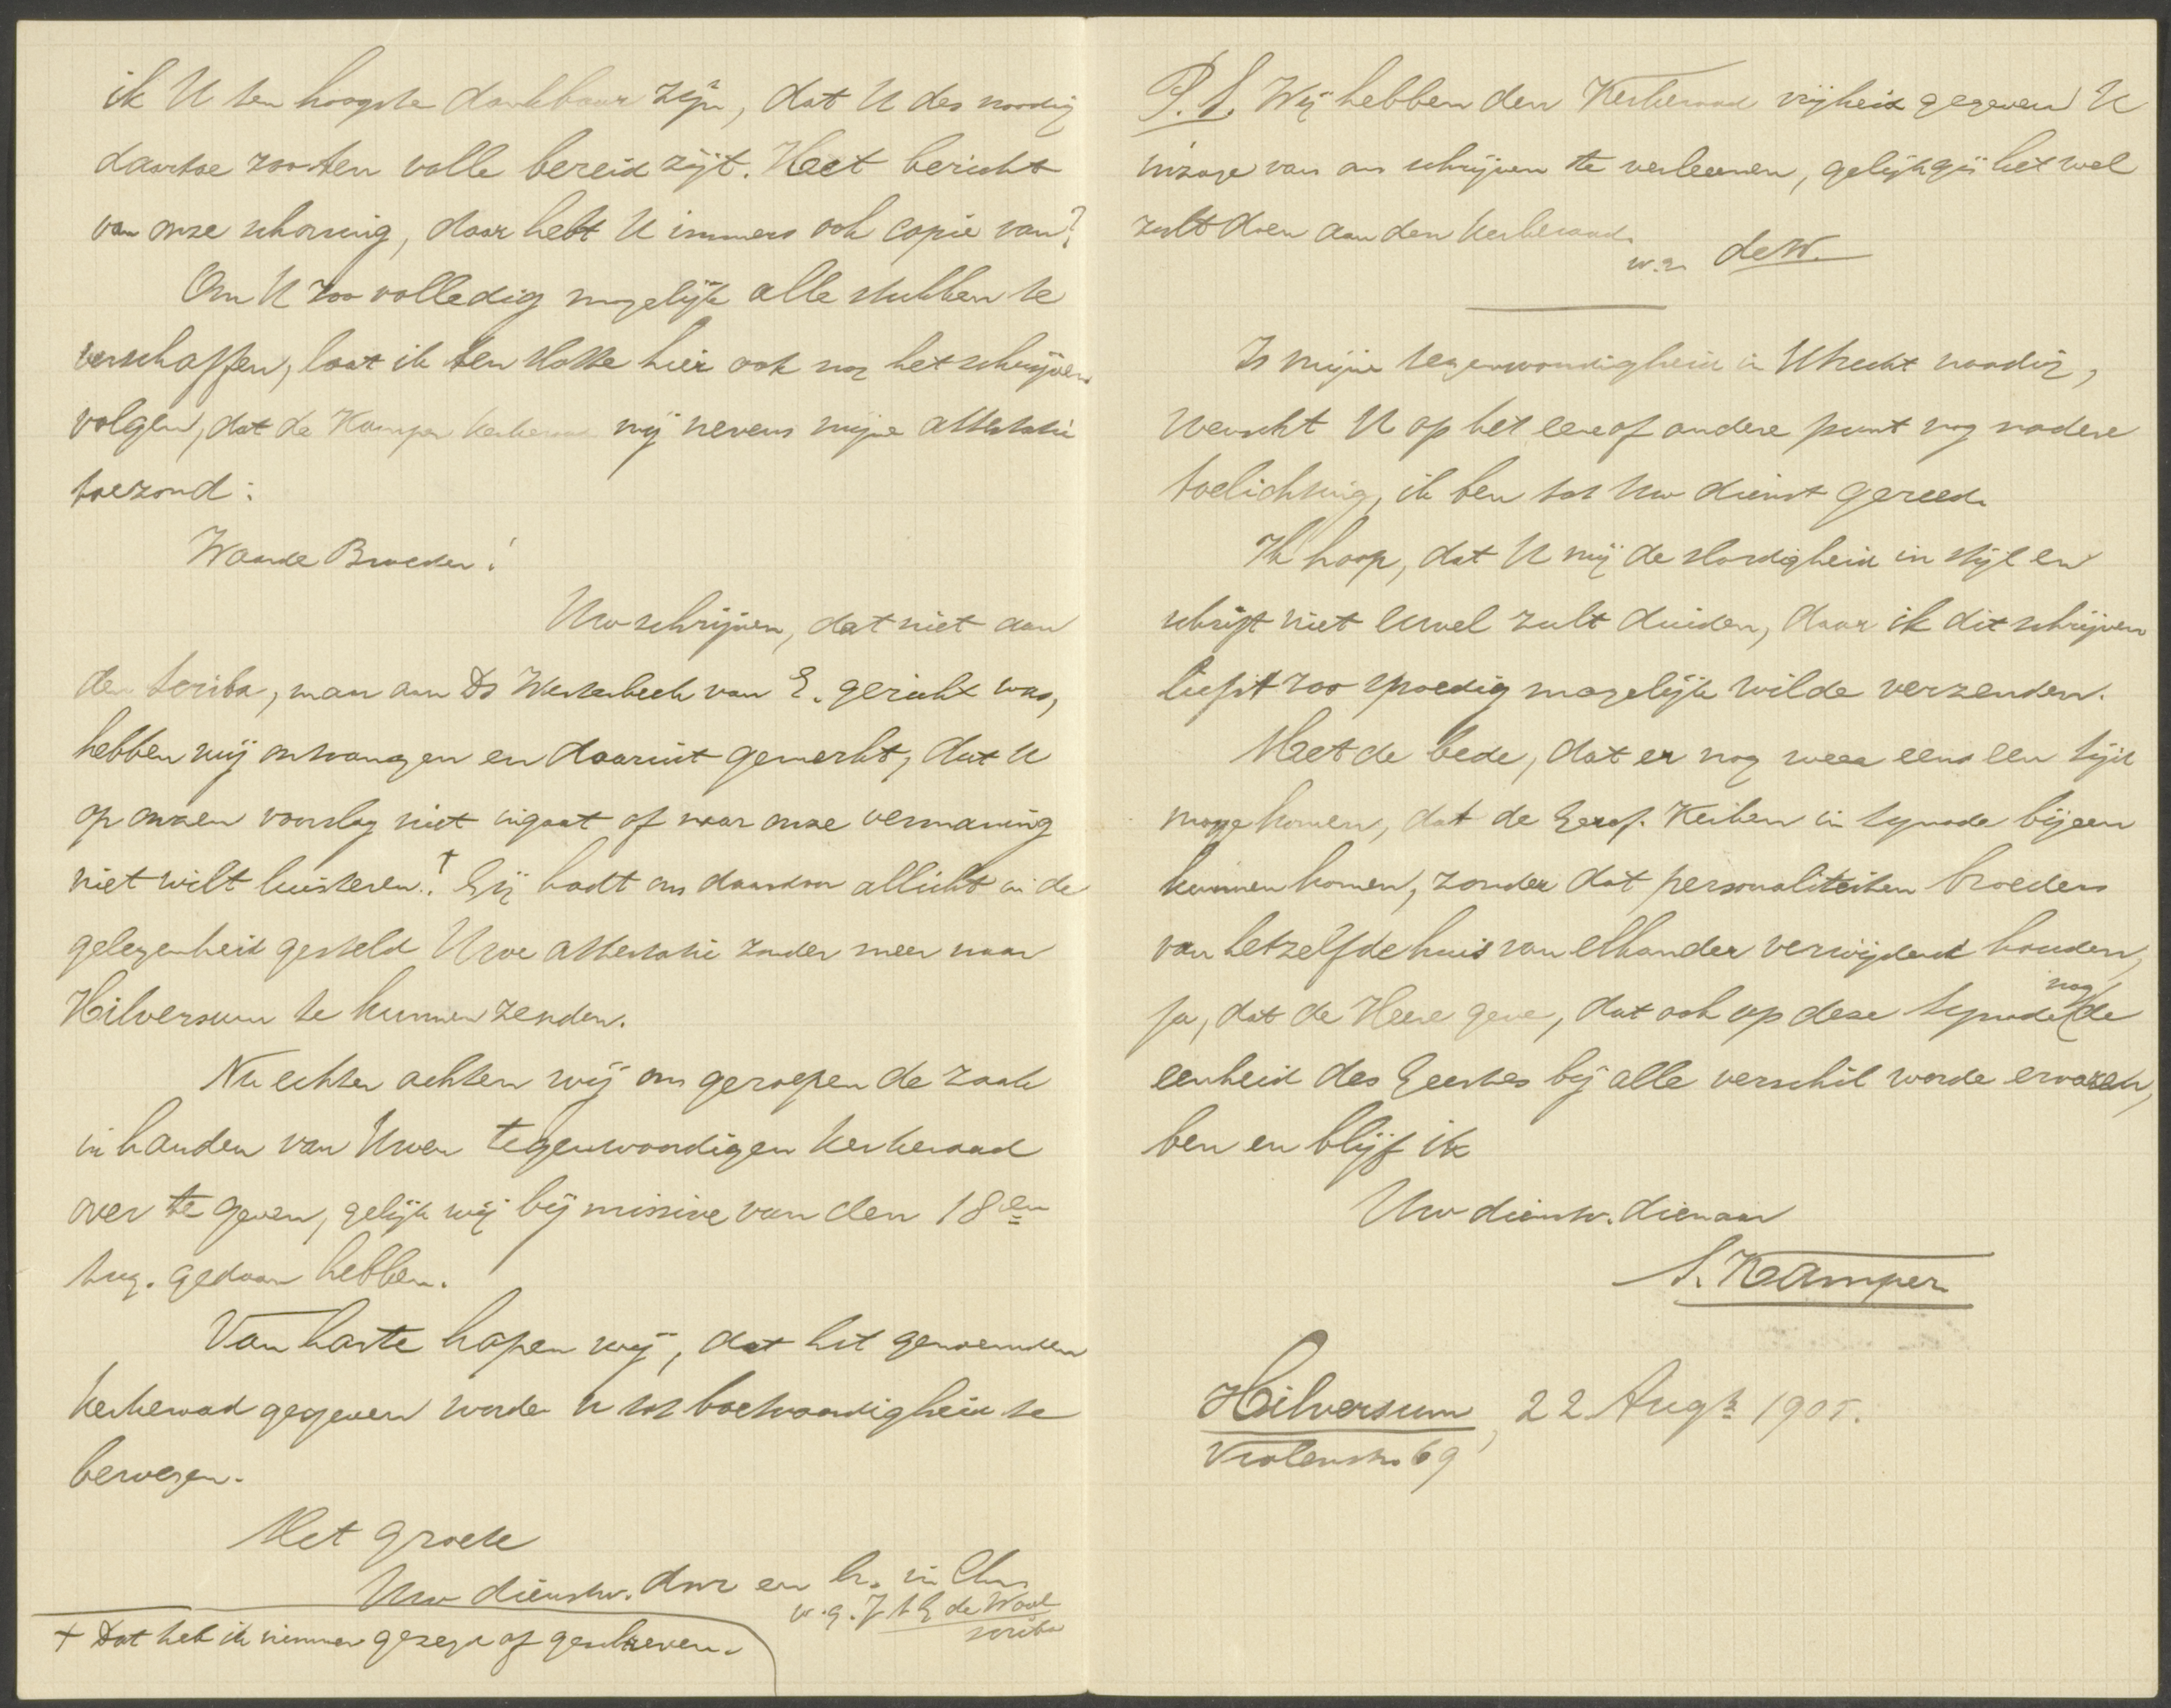 ik U ten hoogste dankbaar zijn, dat U des noodig
daartoe zoo ten volle bereid zijt. Heet bericht
van onze schorsing, daar hebt U immers ook copie van?
Om U zoo volledig mogelijk alle stukken te
verschaffen, laat ik ten slotte hier ook nog het schrijven
volgen, dat de Kamper Kerkeraad mij nevens mijne attestatie
toezond:
Waarde Broeder!
Uw schrijven, dat niet aan
den scriba, maar aan Ds Westerbeek van E. gericht was,
hebben wij ontvangen en daaruit gemerkt, dat U
op onzen voorslag niet ingaat of naar onze vermaning
niet wilt luisteren.! + Gij hadt ons daardoor allicht in de
gelegenheid gesteld Uwe attestatie zonder meer naar
Hilversum te kunnen zenden.
Nu echter achten wij ons geroepen de zaak
in handen van Uwen tegenwoordigen Kerkeraad
over te geven, gelijk wij bij missive van den 18en
Aug. gedaan hebben.
Van harte hopen wij, dat het genoemden
Kerkeraad gegeven worde U tot boetvaardigheid te
bewegen.
Met groete
Uw dienstw. dnr en br. in Chr.
w.g. J de Waal
scriba
+ Dat heb ik nimmer gezegd of geschreven.
P.S. Wij hebben den Kerkeraad vrijheid gegeven U
inzage van ons schrijven te verleenen, gelijk gij het wel
zult doen aan den Kerkeraad.
w.g. de W.
Is mijne tegenwoordigheid in Utrecht noodig,
wenscht U op het een of andere punt nog nadere
toelichting, ik ben tot Uw dienst gereed.
Ik hoop, dat U mij de slordigheid in stijl en
schrift niet euvel zult duiden, daar ik dit schrijven
liefst zoo spoedig mogelijk wilde verzenden.
Met de bede, dat er nog weer eens een tijd
moge komen, dat de Geref. Kerken in Synode bijeen
kunnen komen, zonder dat personaliteiten broeders
van hetzelfde huis van elkander verwijderd houden,
ja, dat de Heere geve, dat ook op deze Synode nog de
eenheid des Geestes bij alle verschil worde ervaren,
ben en blijf ik
Uw dienstw. dienaar
S. Kamper
Hilversum, 22 Augs 1905.
Violenstr. 69